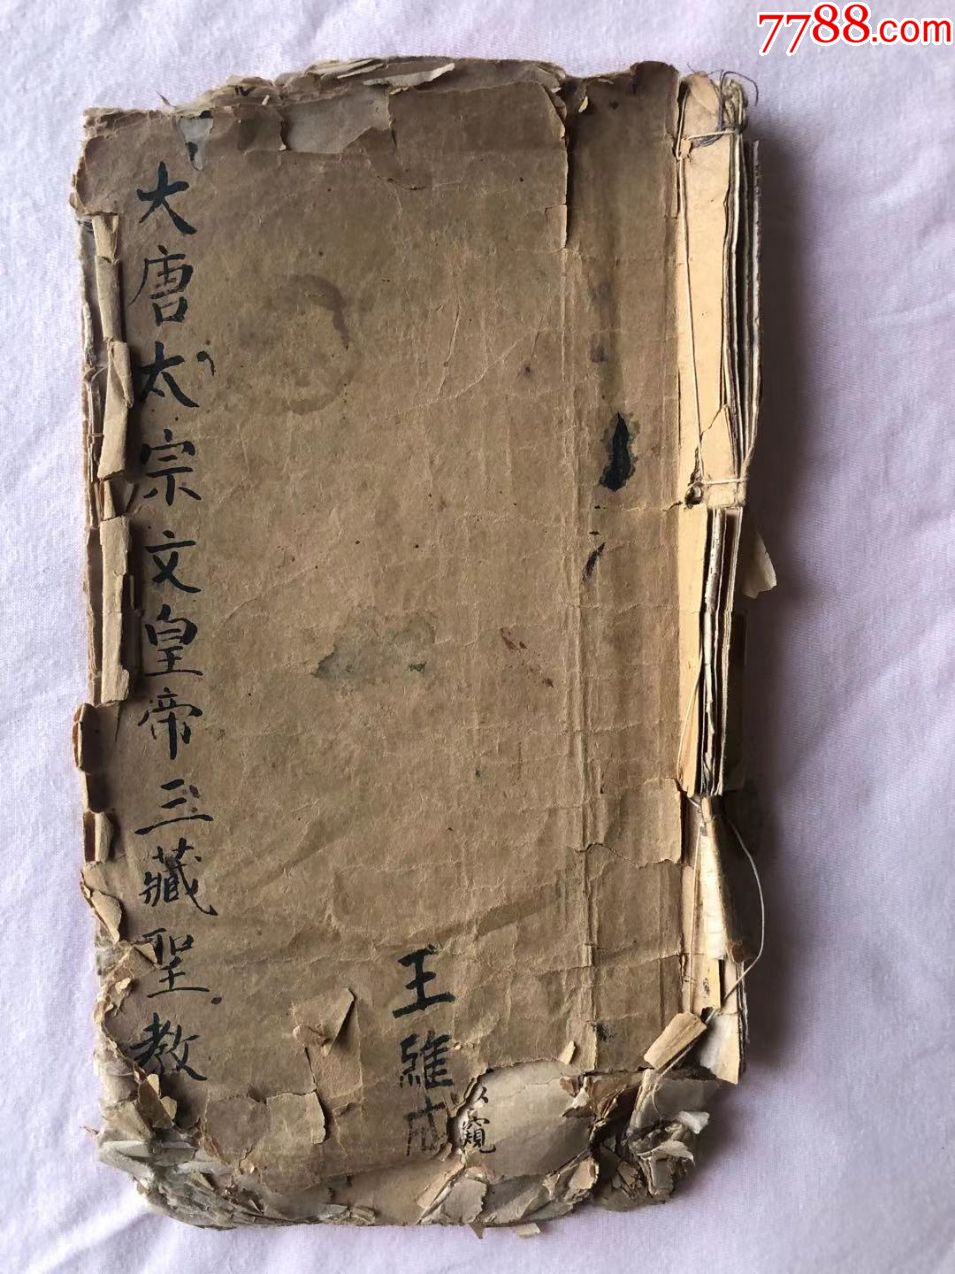 7788.com
大唐太宗文皇帝三藏聖教
王維成
以窺